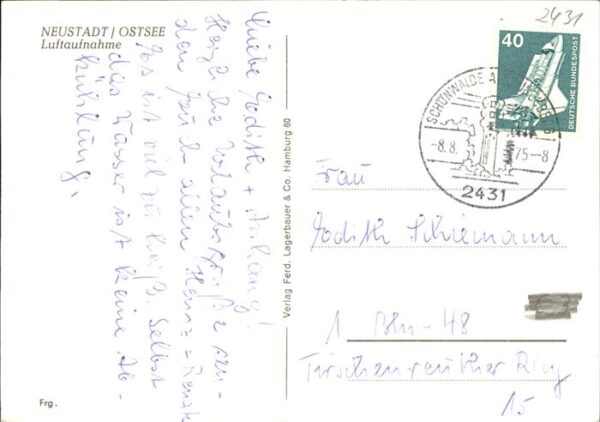 NEUSTADT / OSTSEE
Luftaufnahme
Liebe Jodith + Anhang!
Herzliche Urlaubsgrüße sen-
den Euch allen Heinz + Renate
Es ist viel zu heiß. Selbst
das Wasser ist keine Ab-
kühlung.
Frg.
Verlag Ferd. Lagerbauer & Co. Hamburg 60
2431
40
DEUTSCHE BUNDESPOST
SCHÖNWALDE A
-8.8.
75-8
2431
Frau
Jodith Schiemann
1 Bln-48
Tirschenreuther Ring
15